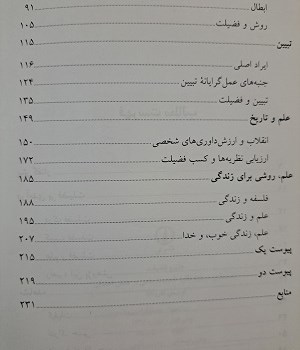 ابطال ۹۱
روش و فضیلت ۱۰۵
تبیین ۱۱۵
ایراد اصلی ۱۱۶
جنبه‌های عمل‌گرایانهٔ تبیین ۱۲۴
تبیین و فضیلت ۱۳۵
علم و تاریخ ۱۴۹
انقلاب و ارزش‌داوری‌های شخصی ۱۵۰
ارزیابی نظریه‌ها و کسب فضیلت ۱۷۲
علم، روشی برای زندگی ۱۸۵
فلسفه و زندگی ۱۸۸
علم و زندگی ۱۹۵
علم، زندگی خوب، و خدا ۲۰۷
پیوست یک ۲۱۵
پیوست دو ۲۱۹
منابع ۲۳۱